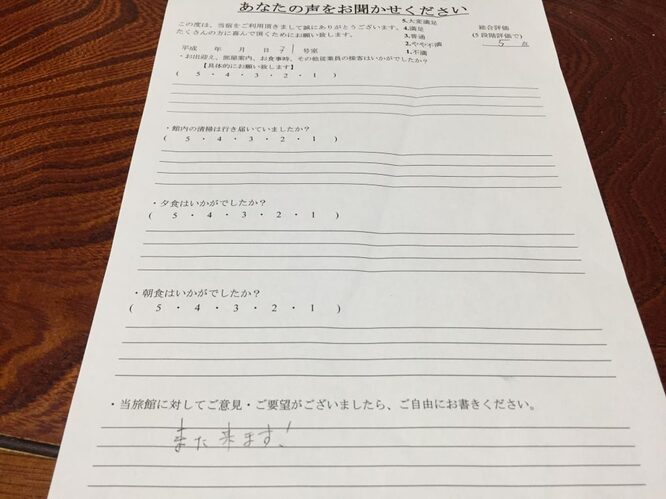 あなたの声をお聞かせください
この度は、当宿をご利用頂きまして誠にありがとうございます。
たくさんの方に喜んで頂くためにお願い致します。
5.大変満足
4.満足
3.普通
2.やや不満
1.不満
総合評価
(5段階評価で)
5 点
平成 年 月 日 71号室
・お出迎え、部屋案内、お食事時、その他従業員の接客はいかがでしたか？
【具体的にお願い致します】
( 5 ・ 4 ・ 3 ・ 2 ・ 1 )
・館内の清掃は行き届いていましたか？
( 5 ・ 4 ・ 3 ・ 2 ・ 1 )
・夕食はいかがでしたか？
( 5 ・ 4 ・ 3 ・ 2 ・ 1 )
・朝食はいかがでしたか？
( 5 ・ 4 ・ 3 ・ 2 ・ 1 )
・当旅館に対してご意見・ご要望がございましたら、ご自由にお書きください。
また来ます!